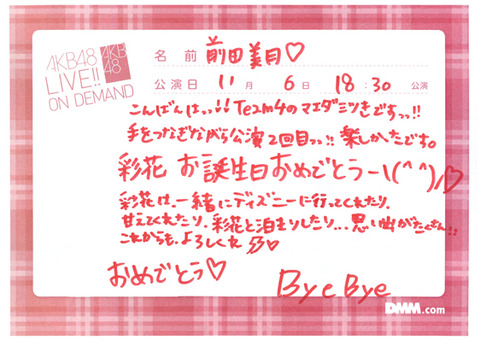 AKB48
LIVE!!
ON DEMAND
AKB
48
名 前 前田美月♡
公演日 11月 6日 18:30 公演
こんばんはっっ!! Team4のマエダミツキですっっ!!
手をつなぎながら公演2回目っっ!! 楽しかったです。
彩花 お誕生日おめでとうー\(^^)/♡
彩花は、一緒にディズニーに行ってくれたり、
甘えてくれたり、彩花と泊まりしたり... 思い出がたくさん!!
これからも、よろしくね♡
おめでとう♡
Bye Bye
DMM.com